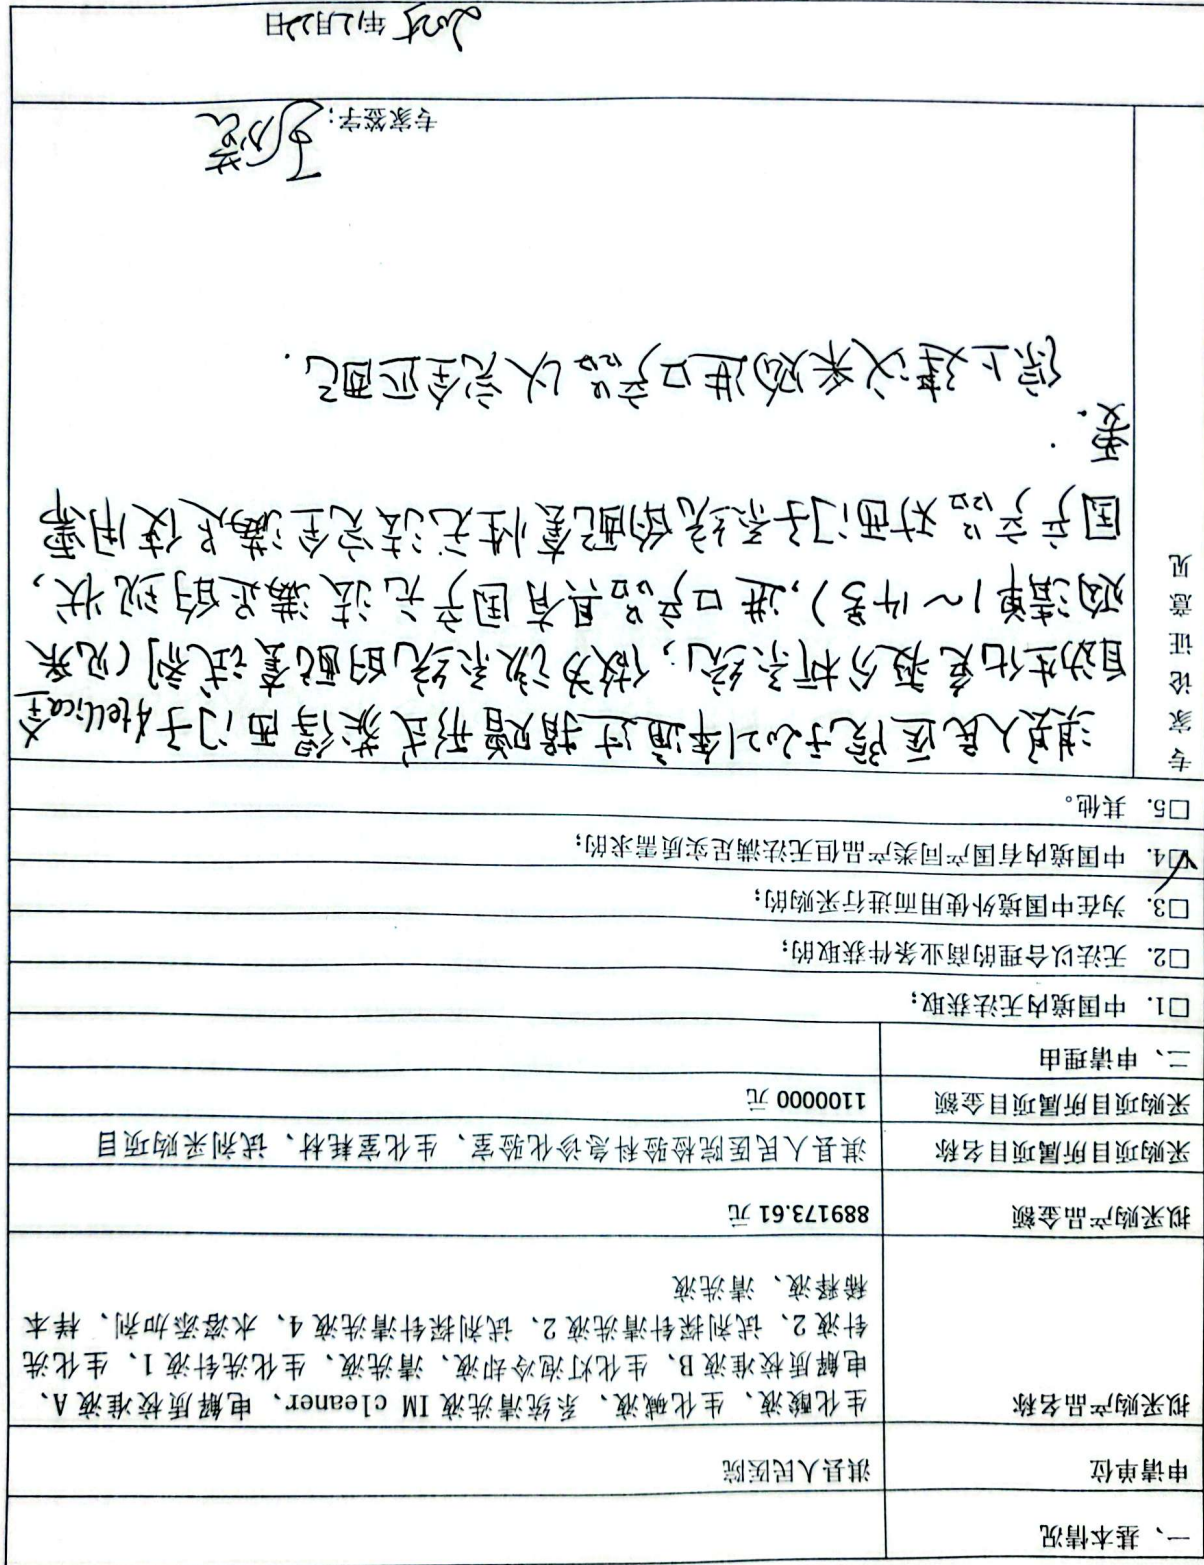 一、基本情况
申请单位 淇县人民医院
拟采购产品名称 生化酸液、生化碱液、系统清洗液 IM cleaner、电解质校准液 A、
电解质校准液 B、生化灯泡冷却液、清洗液、生化洗针液 1、生化洗
针液 2、试剂探针清洗液 2、试剂探针清洗液 4、水浴添加剂、样本
稀释液、清洗液
拟采购产品金额 889173.61 元
采购项目所属项目名称 淇县人民医院检验科急诊化验室、生化室耗材、试剂采购项目
采购项目所属项目金额 1100000 元
二、申请理由
□1. 中国境内无法获取；
□2. 无法以合理的商业条件获取的；
□3. 为在中国境外使用而进行采购的；
☑4. 中国境内有国产同类产品但无法满足实质需求的；
□5. 其他。
专家论证意见
淇县人民医院于2021年通过捐赠形式获得西门子Atellica全
自动生化免疫分析系统，做为该系统的配套试剂（见采
购清单1～14号），进口产品具有国产无法满足的现状，
国产产品对西门子系统的配套性无法完全满足使用需
要．
综上建议采购进口产品以完全匹配．
专家签字：
2025年12月22日